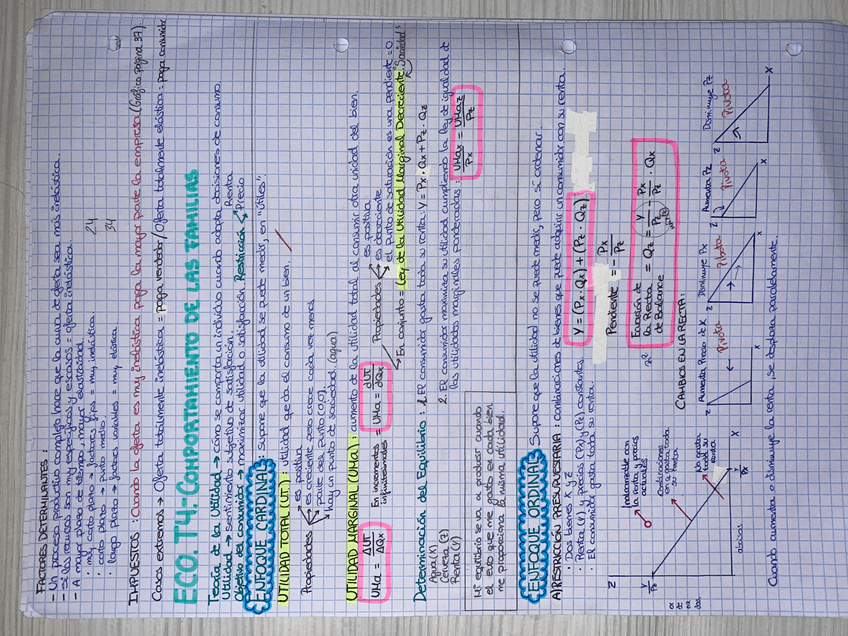 FACTORES DETERMINANTES:
- Un proceso productivo complejo hace que la curva de oferta sea más inelástica.
- Si los recursos son muy específicos y escasos = oferta inelástica.
- A mayor plazo de tiempo, mayor elasticidad.
· muy corto plazo → factores fijos = muy inelástica
· corto plazo → punto medio
· largo plazo → factores variables = muy elástica
24
34
IMPUESTOS: Cuando la oferta es muy inelástica paga la mayor parte la empresa (Gráfico página 37).
Casos extremos → Oferta totalmente inelástica = paga vendedor / Oferta totalmente elástica = paga consumidor
ECO. T4.- COMPORTAMIENTO DE LAS FAMILIAS
Teoría de la Utilidad → cómo se comporta un individuo cuando adopta decisiones de consumo
Utilidad → Sentimiento subjetivo de satisfacción.
Objetivo del consumidor → maximizar utilidad o satisfacción. Restricción
Renta
Precio
ENFOQUE CARDINAL: Supone que la utilidad se puede medir, en "útiles".
UTILIDAD TOTAL (UT): utilidad que da el consumo de un bien.
Propiedades
es positiva
es creciente pero crece cada vez menos
parte del punto (0,0).
hay un punto de saciedad. (agua)
UTILIDAD MARGINAL (UMa): aumento de la utilidad total al consumir otra unidad del bien.
UMa = ΔUT / ΔQx
En incrementos infinitesimales = UMa = dUT / dQx
Propiedades
es positiva
es decreciente
el punto de saturación es una pendiente = 0.
"Saciedad"
→ En conjunto = Ley de la Utilidad Marginal Decreciente.
Determinación del Equilibrio: 1. El consumidor gasta toda su renta: Y = Px · Qx + Pz · Qz
Agua (X)
Cerveza (Z)
Renta (Y)
2. El consumidor maximiza su utilidad cumpliendo la ley de igualdad de
las utilidades marginales ponderadas
UMax / Px = UMaz / Pz
equilibrio se va a producir cuando
el euro que me gasto en cada bien
me proporciona la misma utilidad.
ENFOQUE ORDINAL: Supone que la utilidad no se puede medir, pero sí ordenar.
A) RESTRICCIÓN PRESUPUESTARIA: combinaciones de bienes que puede adquirir un consumidor con su renta.
· Dos bienes X y Z
· Renta (Y) y precios (Px) y (Pz) constantes.
· El consumidor gasta toda su renta.
Y = (Px · Qx) + (Pz · Qz)
Pendiente = - Px / Pz
Ecuación de la Recta de Balance = Qz = Y / Pz - Px / Pz · Qx
Z
Y / Pz
Inalcanzable con
la renta y precios
actuales
Combinaciones
en q gasta toda
su renta
No gasta
toda su
renta
X
Y / Px
CAMBIOS EN LA RECTA:
Aumenta Precio de X
Z
Pivota
X
Disminuye Px
Z
Pivota
X
Aumenta Pz
Z
Pivota
X
Disminuye Pz
Z
Pivota
X
Cuando aumenta o disminuye la renta, se desplaza paralelamente.